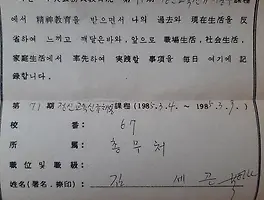 에서 精神敎育을 받으면서 나의 過去와 現在生活을 反
省하여 느끼고 깨달은바와, 앞으로 職場生活, 社會生活,
家庭生活에서 率先하여 実踐할 事項을 每日 여기에 記
録합니다.
第 71 期 정신교육 課程 (1985. 3. 4. ~ 1985. 3. 9.)
校 番: 67
所 屬: 총무처
職位 및 職級:
姓名(署名, 捺印): 김 세